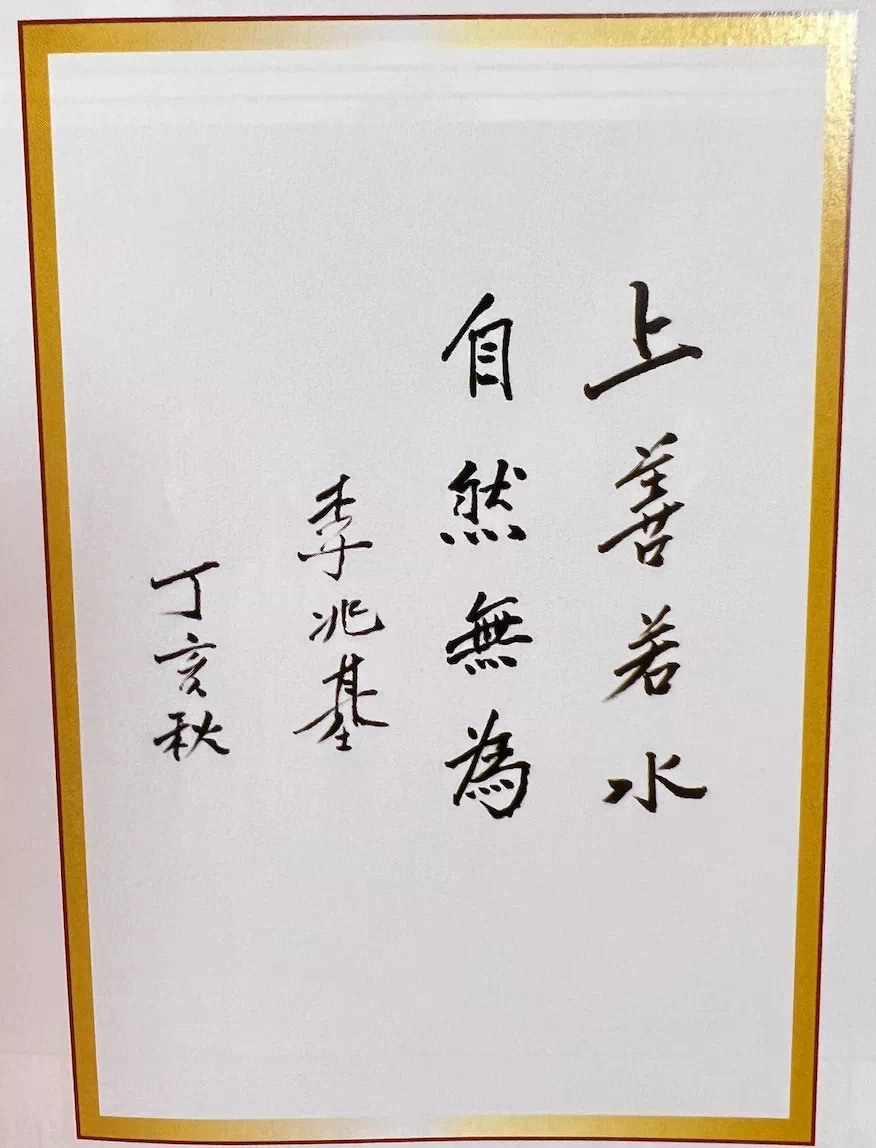 上善若水
自然無為
李兆基
丁亥秋